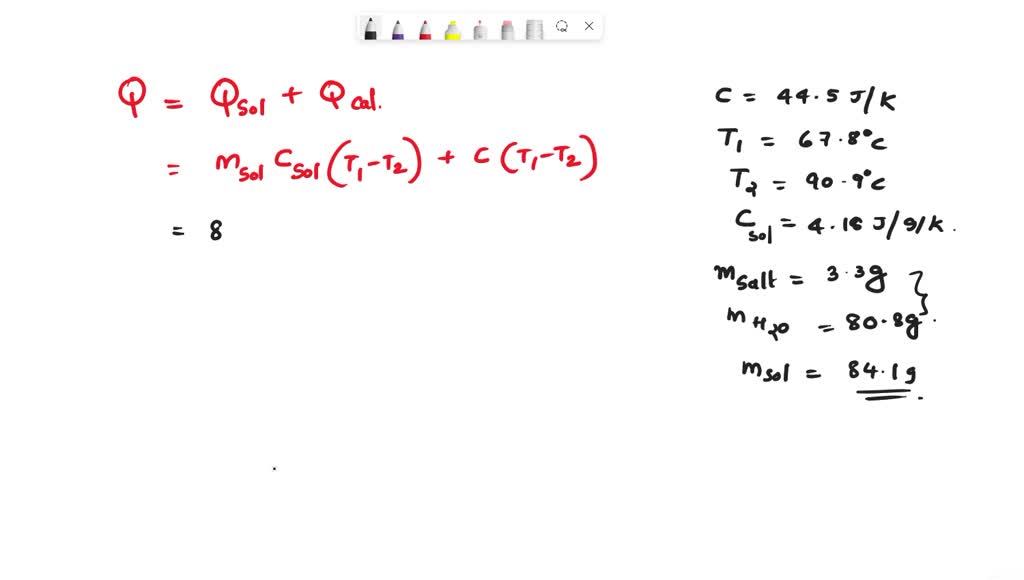 Q = Qsol + Qcal.
= msol Csol (T1-T2) + C (T1-T2)
= 8
C = 44.5 J/K
T1 = 67.8°C
T2 = 90.9°C
Csol = 4.18 J/g/K.
msalt = 3.3g
mH2O = 80.8g.
msol = 84.1g.